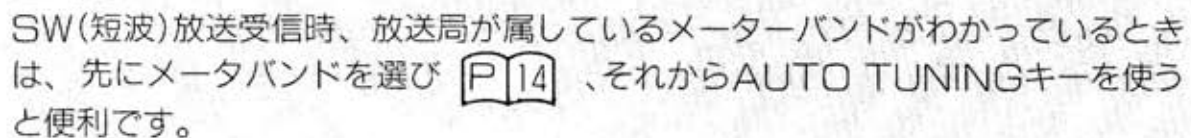 SW(短波)放送受信時、放送局が属しているメーターバンドがわかっているとき
は、先にメータバンドを選び P14 、それからAUTO TUNINGキーを使う
と便利です。